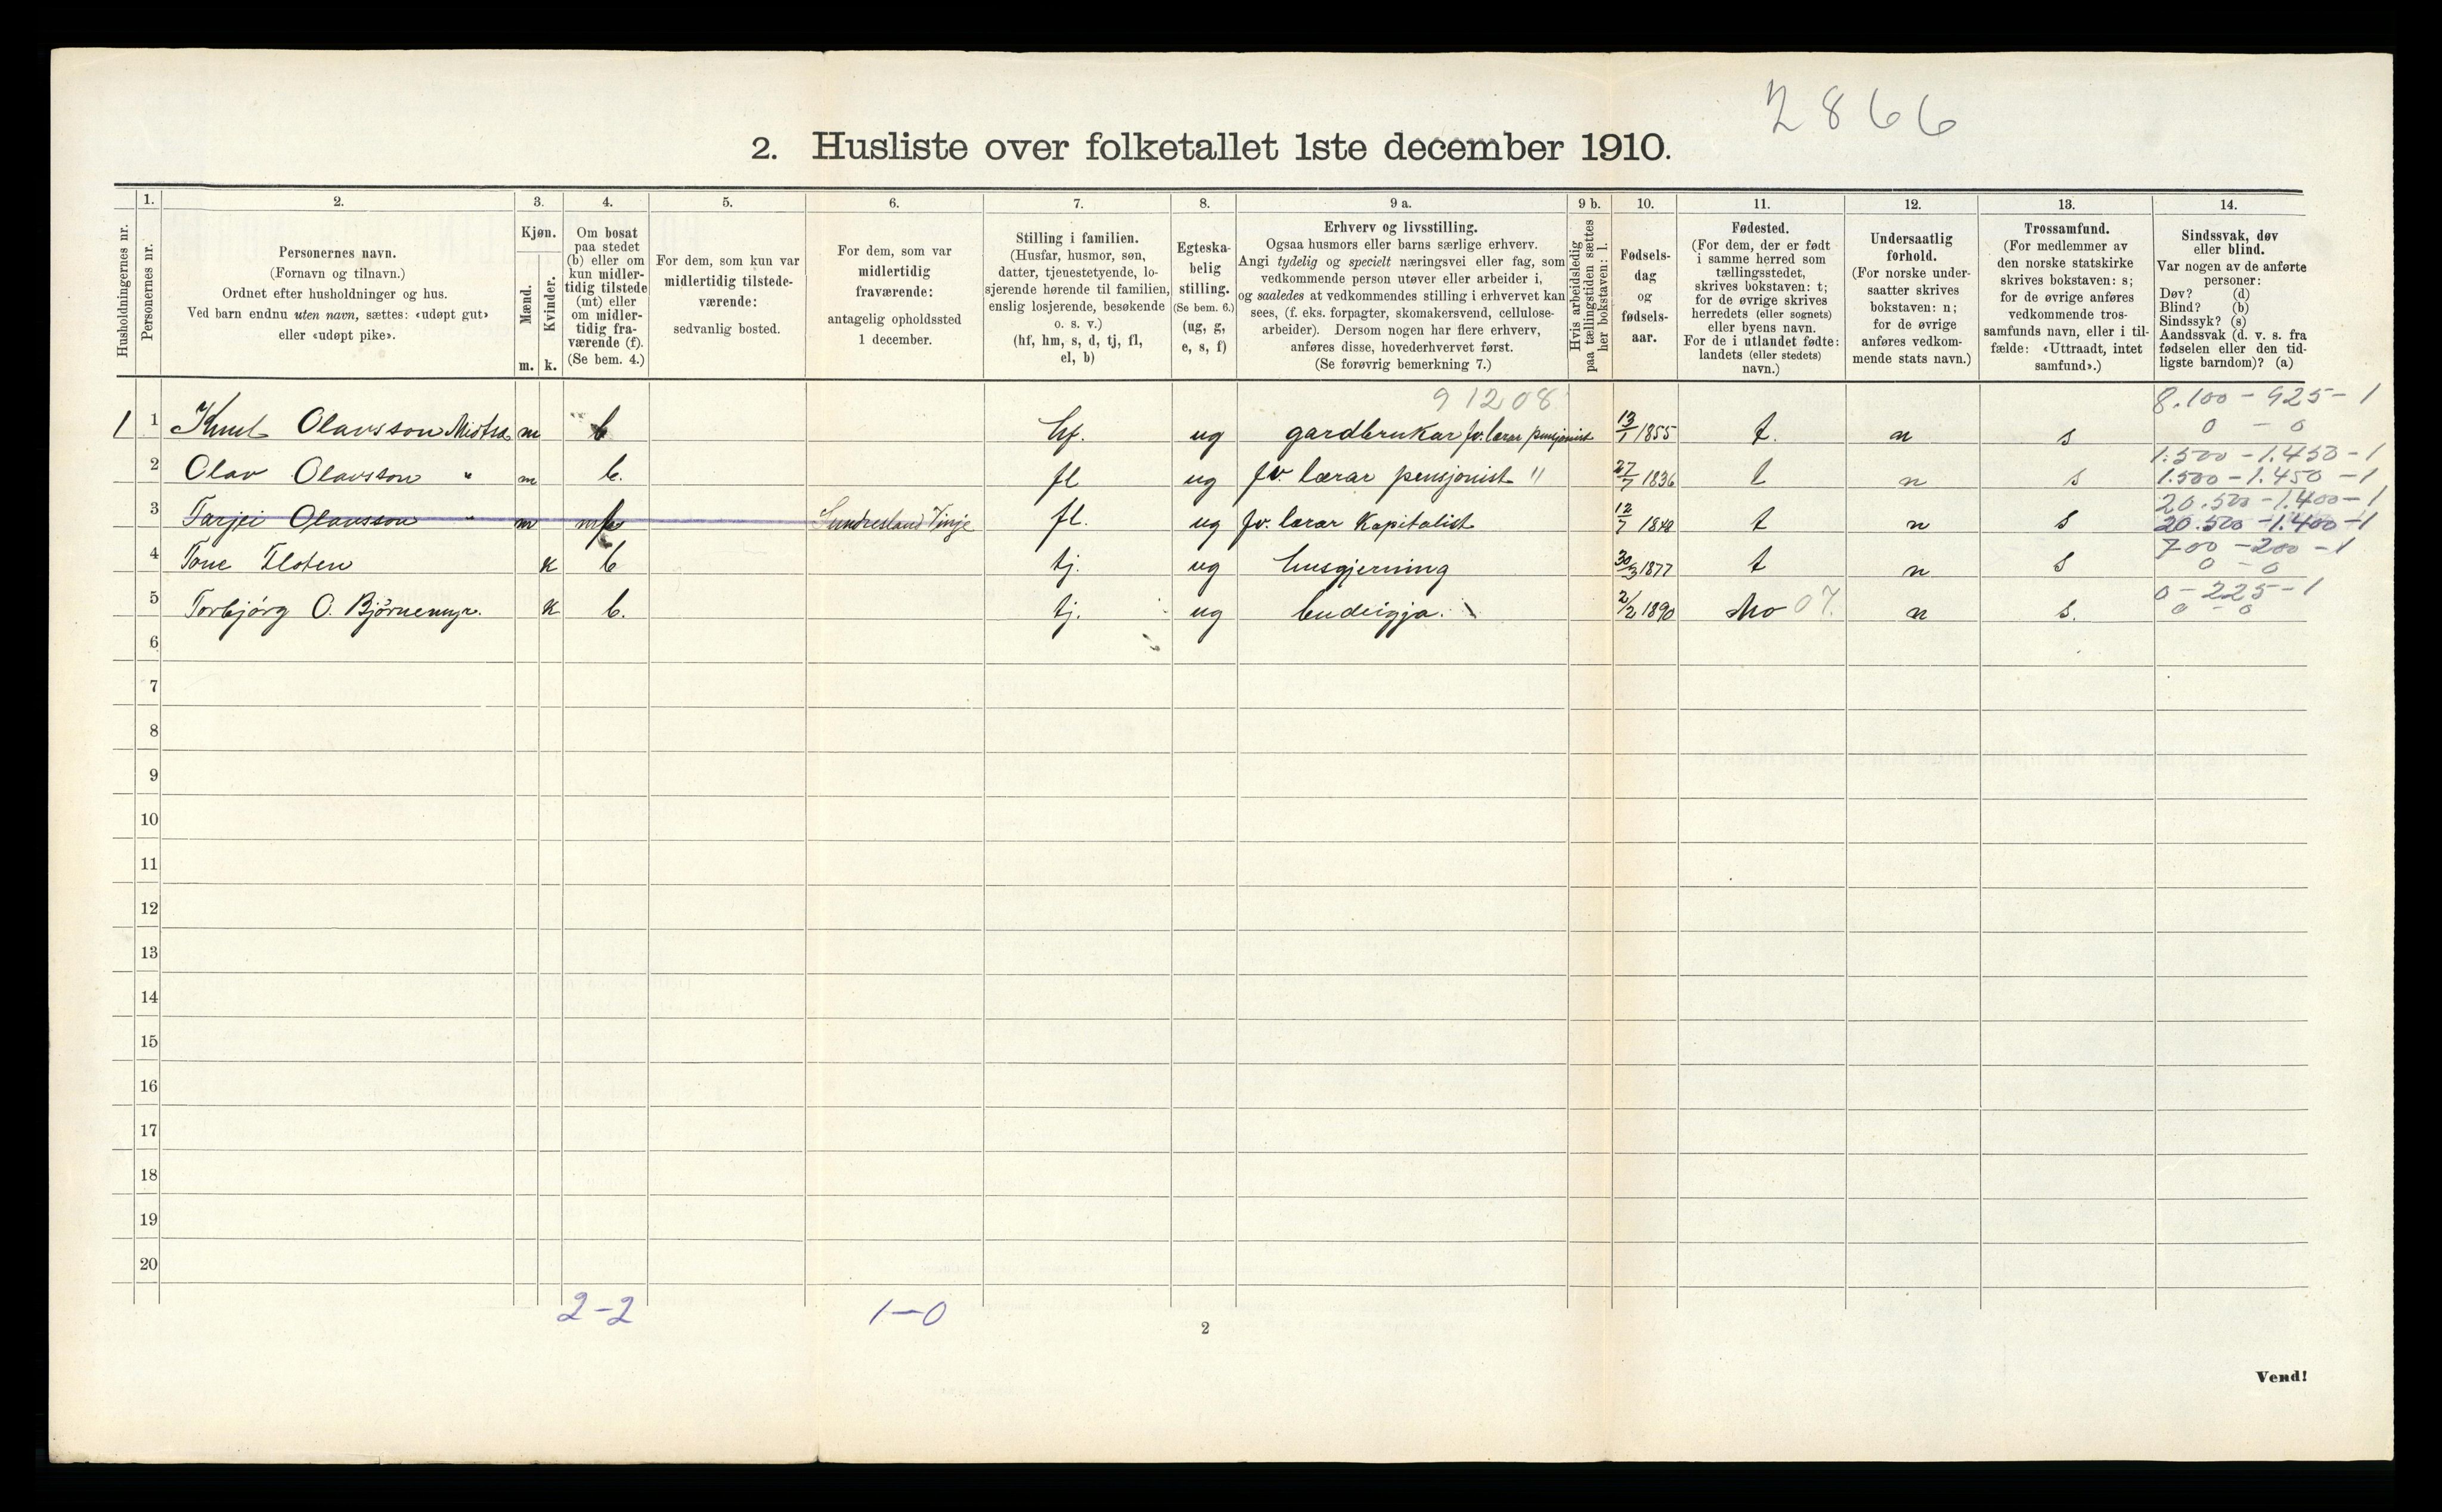 2866
2. Husliste over folketallet 1ste december 1910.
Husholdningernes nr.
1.
Personernes nr.
2.
Personernes navn.
(Fornavn og tilnavn.)
Ordnet efter husholdninger og hus.
Ved barn endnu uten navn, sættes: «udøpt gut»
eller «udøpt pike».
3.
Kjøn.
Mænd.
Kvinder.
m. k.
4.
Om bosat
paa stedet
(b) eller om
kun midler-
tidig tilstede
(mt) eller
om midler-
tidig fra-
værende (f).
(Se bem. 4.)
5.
For dem, som kun var
midlertidig tilstede-
værende:
sedvanlig bosted.
6.
For dem, som var
midlertidig
fraværende:
antagelig opholdssted
1 december.
7.
Stilling i familien.
(Husfar, husmor, søn,
datter, tjenestetyende, lo-
sjerende hørende til familien,
enslig losjerende, besøkende
o. s. v.)
(hf, hm, s, d, tj, fl,
el, b)
8.
Egteska-
belig
stilling.
(Se bem. 6.)
(ug, g,
e, s, f)
9 a.
Erhverv og livsstilling.
Ogsaa husmors eller barns særlige erhverv.
Angi tydelig og specielt næringsvei eller fag, som
vedkommende person utøver eller arbeider i,
og saaledes at vedkommendes stilling i erhvervet kan
sees, (f. eks. forpagter, skomakersvend, cellulose-
arbeider). Dersom nogen har flere erhverv,
anføres disse, hovederhvervet først.
(Se forøvrig bemerkning 7.)
9 b.
Hvis arbeidsledig
paa tællingstiden sættes
her bokstaven: l.
10.
Fødsels-
dag
og
fødsels-
aar.
11.
Fødested.
(For dem, der er født
i samme herred som
tællingsstedet,
skrives bokstaven: t;
for de øvrige skrives
herredets (eller sognets)
eller byens navn.
For de i utlandet fødte:
landets (eller stedets)
navn.)
12.
Undersaatlig
forhold.
(For norske under-
saatter skrives
bokstaven: n;
for de øvrige
anføres vedkom-
mende stats navn.)
13.
Trossamfund.
(For medlemmer av
den norske statskirke
skrives bokstaven: s;
for de øvrige anføres
vedkommende tros-
samfunds navn, eller i til-
fælde: «Uttraadt, intet
samfund».)
14.
Sindssvak, døv
eller blind.
Var nogen av de anførte
personer:
Døv? (d)
Blind? (b)
Sindssyk? (s)
Aandssvak (d. v. s. fra
fødselen eller den tid-
ligste barndom)? (a)
91208 8.100 - 925 - 1
1 1 Knut Olavsson m b hf. ug gardbrukar fv. lærar pensjonist 13/1 1855 t. n s 0 - 0
1.500 - 1.450 - 1
2 Olav Olavsson " m b. fl ug fv. lærar pensjonist " 27/7 1836 t n s 1.500 - 1.450 - 1
20.500 - 1.400 - 1
3 Tarjei Olavsson " m Vinje fl. ug fv. lærar Kapitalist 12/7 1848 t n s 20.500 - 1.400 - 1
700 - 200 - 1
4 Tone Floten k b tj. ug husgjerning 30/3 1877 t n s 0 - 0
0 - 225 - 1
5 Torbjørg O. Bjørnemyr. k b. tj. ug budeigja. 2/2 1890 Mo 07. n s. 0 - 0
6
7
8
9
10
11
12
13
14
15
16
17
18
19
20
2-2 1-0
2
Vend!